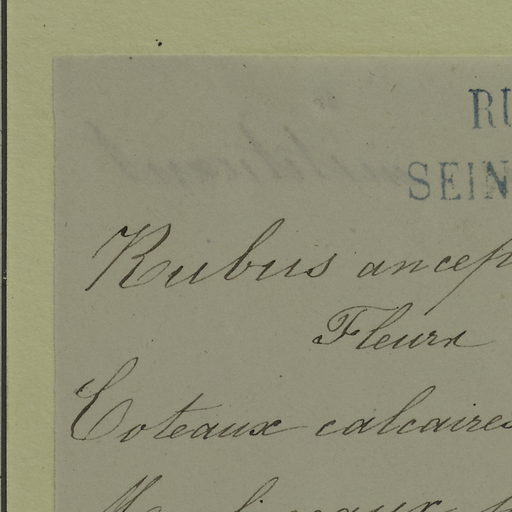 RU
SEIN
Rubus ancep
Fleurx
Coteaux calcaires